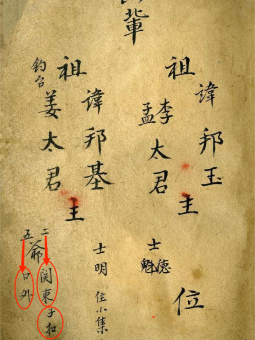 輩
祖諱邦玉主
李孟太君
士德魁
位
祖諱邦基主
钓台
姜太君
士明 住小集
二五爺
関東子扣
口外